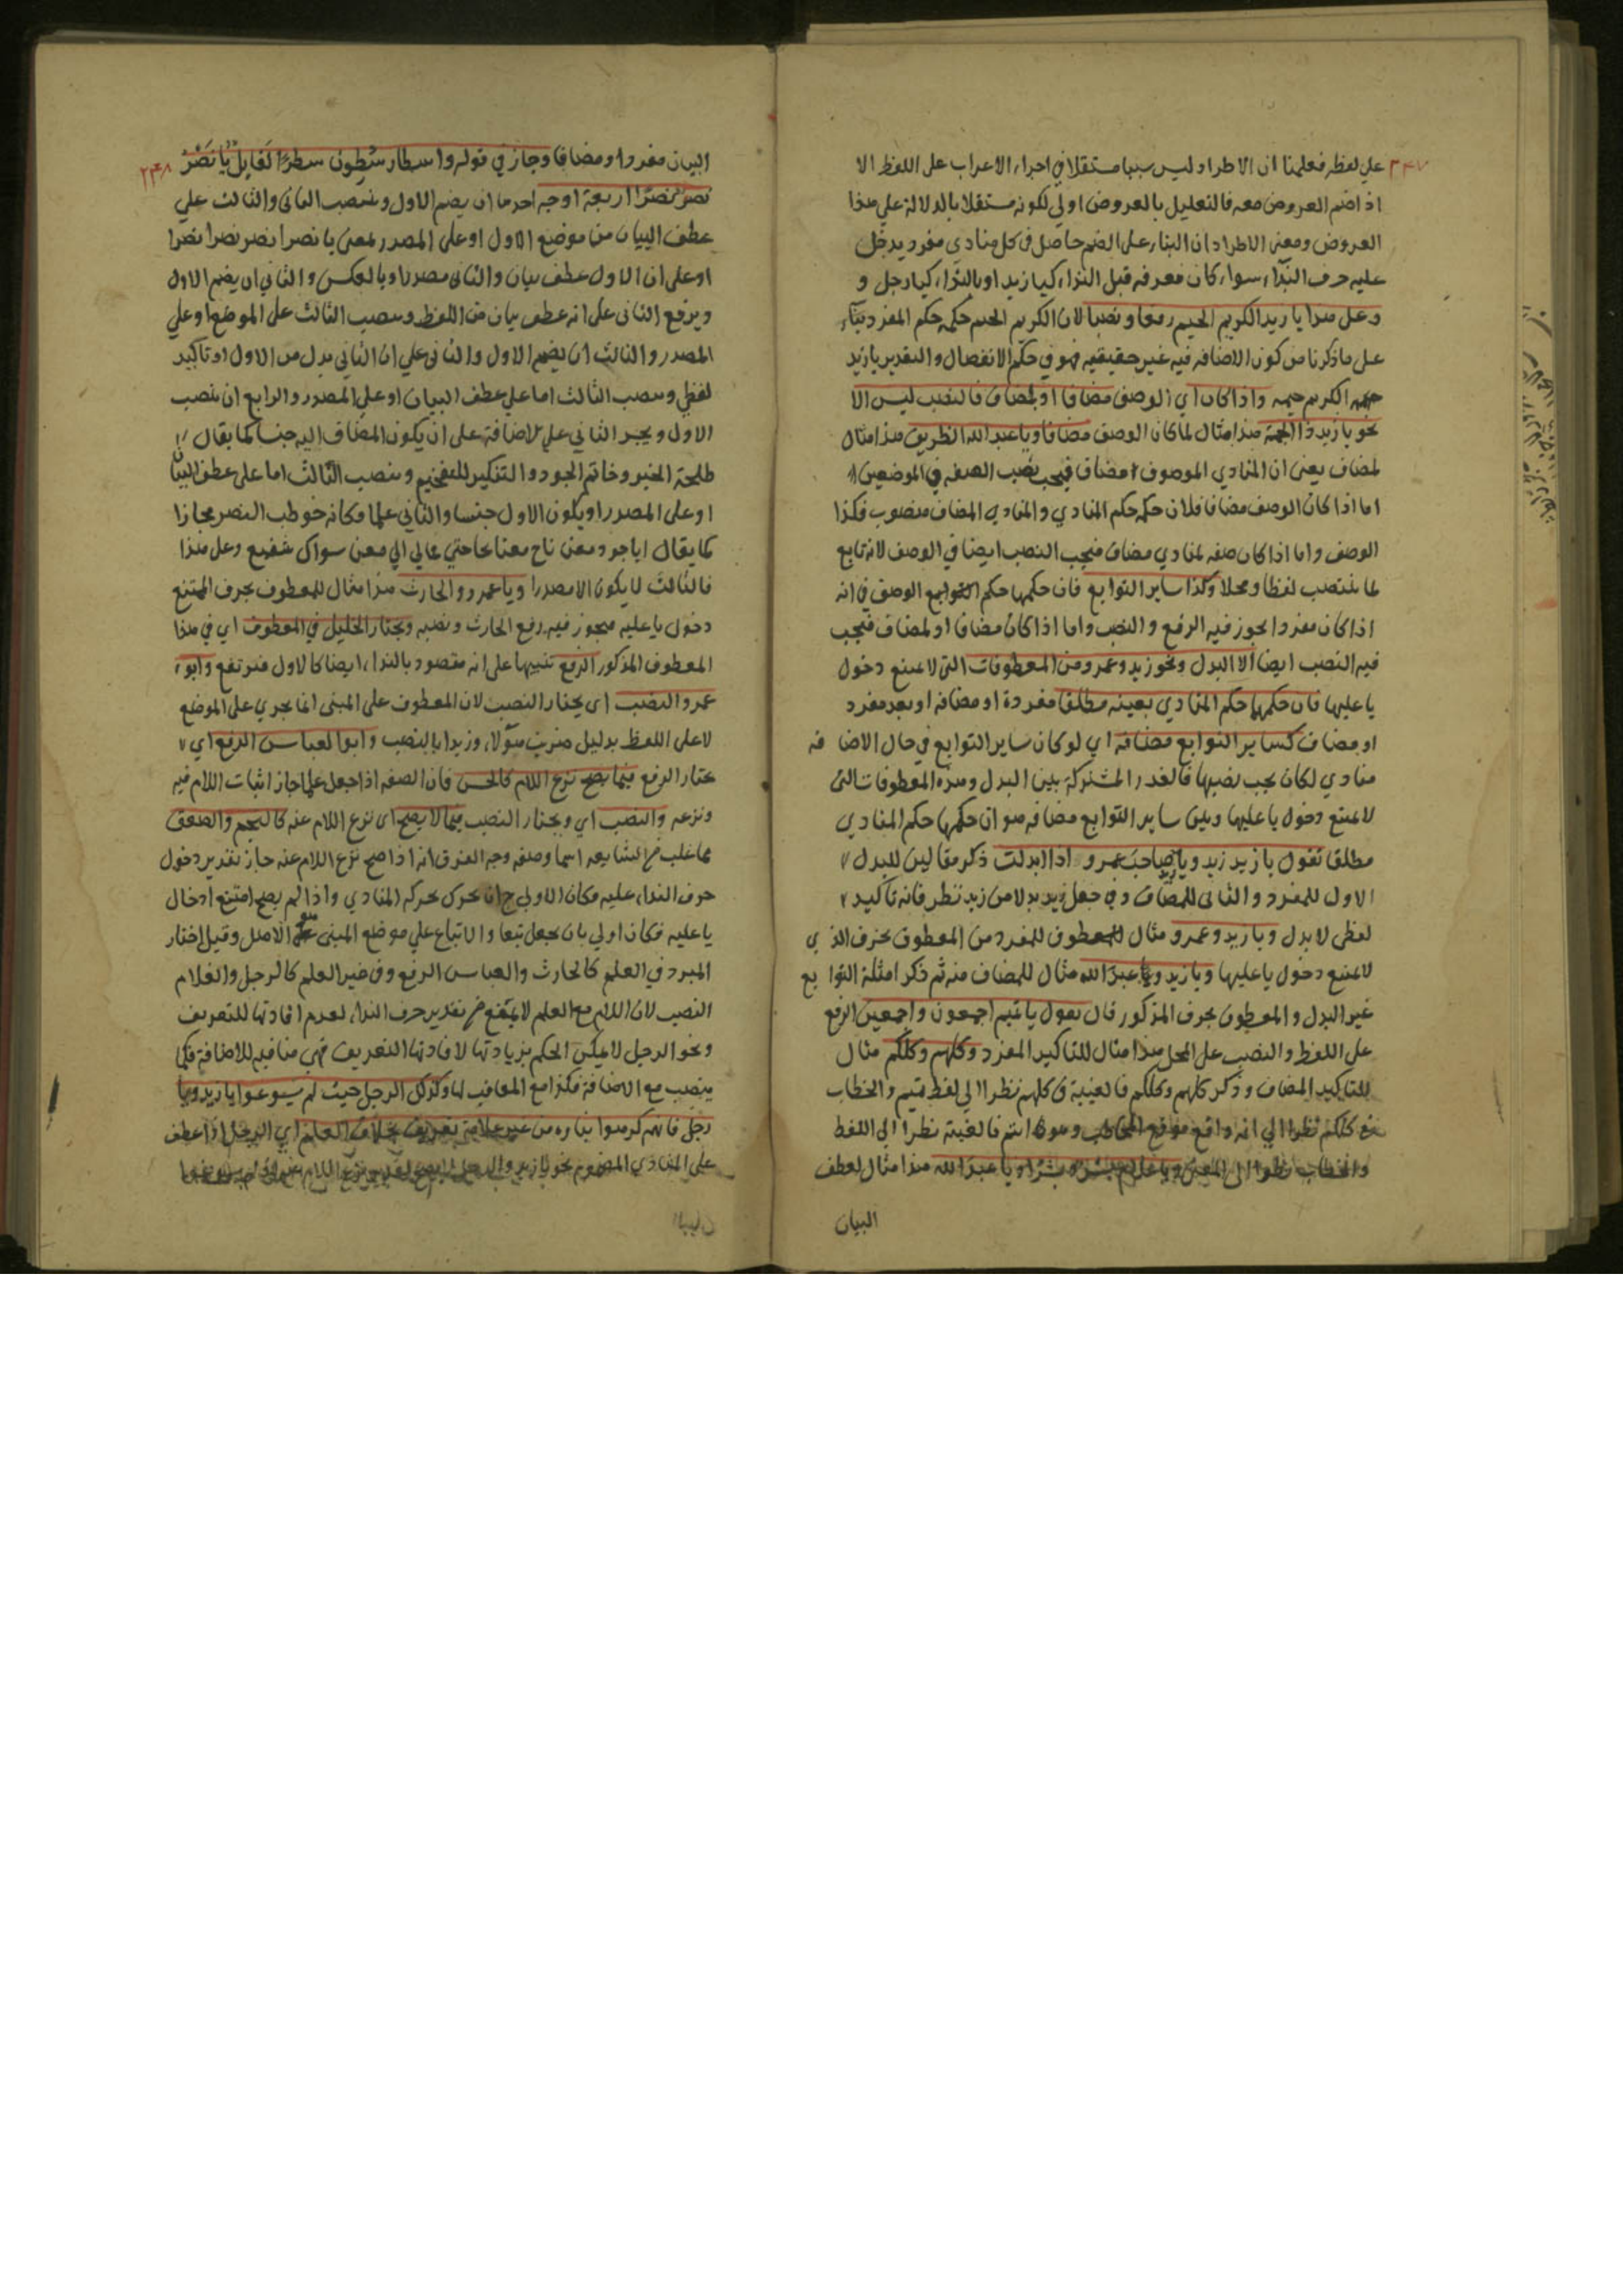 ٢٤٧
علي لفظه فعلمنا ان الاطراد ليس سببا مستقلا في اجراء الاعراب على اللفظ الا
اذا ضم العروض معه فالتعليل بالعروض اولي لكونه مستقلا بالدلالة علي هذا
العروض ومعنى الاطراد ان البناء على الضم حاصل في كل منادي مفرد يدخل
عليه حرف النداء سواء كان معرفه قبل النداء كيا زيد او بالنداء كيا رجل و
وعلى هذا يا زيد الكريم الخيم رفعا ونصبا لان الكريم الخيم حكمه حكم المفرد بناء
على ما ذكرنا من كون الاضافه فيه غير حقيقيه فهو في حكم الانفصال والتقدير يا زيد
الكريم خيمه واذا كان اي الوصف مضافا او لمضاف فالنصب ليس الا
نحو يا زيد ذا الجمة هذا مثال لما كان الوصف مضافا ويا عبد الله الظريف هذا مثال
لمضاف يعنى ان المنادي الموصوف مضاف فيجب نصب الصفه في الموضعين
اما اذا كان الوصف مضافا فلان حكمه حكم المنادي والمنادي المضاف منصوب فكذا
الوصف واما اذا كان صفه لمنادي مضاف فيجب النصب ايضا في الوصف لانه تابع
لما ينتصب لفظا ومحلا وكذا ساير التوابع فان حكمها حكم التوابع الوصف في انه
اذا كان مفردا يجوز فيه الرفع والنصب واما اذا كان مضافا او لمضاف فيجب
فيه النصب ايضا الا البدل ونحو زيد وعمرو من المعطوفات التي لا يمتنع دخول
يا عليها فان حكمها حكم المنادي بعينه مطلقا مفردة او مضافه او بعد مفرد
او مضاف كساير التوابع مضافة اي لو كان ساير التوابع في حال الاضافه
منادي لكان يجب نصبها فالقدر المشتركة بين البدل وهذه المعطوفات التي
لا يمتنع دخول يا عليها وبين ساير التوابع مضافه هو ان حكمها حكم المنادي
مطلقا تقول يا زيد زيد ويا زيد صاحب عمرو اذا ابدلت ذكر مثالين للبدل
الاول للمفرد والثاني للمضاف وفي جعل زيد بدلا من زيد نظر فانه تاكيد
لفظي لا بدل ويا زيد وعمرو مثال للمعطوف للمفرد من المعطوف بحرف الذي
لا يمتنع دخول يا عليها ويا زيد ويا عبد الله مثال للمضاف منه ثم ذكر امثلة التوابع
غير البدل والمعطوف بحرف المذكور قال تقول يا تميم اجمعون واجمعين الرفع
على اللفظ والنصب على المحل هذا مثال للتاكيد المفرد وكلهم وكلكم مثال
للتاكيد المضاف وذكر كلهم وكلكم فالغيبة في كلهم نظرا الي لفظ تميم والخطاب
في كلكم نظرا الي انه واقع موقع المخاطب وهو انتم فالغيبة نظرا الى اللفظ
والخطاب نظرا الى المعنى ويا غلام بشر وبشرا ويا عبد الله هذا مثال لعطف
البيان
٢٤٨
البيان مفردا ومضافا وجاز في قوله واسطار سطرن سطرا لقايل يا نصر
نصر نصرا اربعة اوجه احدها ان يضم الاول وينصب الثاني والثالث علي
عطف البيان من موضع الاول او على المصدر بمعنى يا نصر انصر نصرا نصرا
او على ان الاول عطف بيان والثاني مصدرا وبالعكس والثاني ان يضم الاول
ويرفع الثاني على انه عطف بيان من اللفظ وينصب الثالث على الموضع او علي
المصدر والثالث ان يضم الاول والثاني علي ان الثاني بدل من الاول او تاكيد
لفظي وينصب الثالث اما على عطف البيان او على المصدر والرابع ان ينصب
الاول ويجر الثاني علي الاضافة على ان يكون المضاف اليه جنسا كما يقال
طلحة الخير وخاتم الجود والتنكير للتفخيم وينصب الثالث اما على عطف البيان
او على المصدر او يكون الاول جنسا والثاني علما وكانه خوطب النصر مجازا
كما يقال ايا جود معن ناج معنا بحاجتي فما لي الي معن سواك شفيع وعلى هذا
فالثالث لا يكون الا مصدرا ويا عمرو والحارث هذا مثال للمعطوف بحرف الممتنع
دخول يا عليه فيجوز فيه رفع الحارث ونصبه ويختار الخليل في المعطوف اي في هذا
المعطوف المذكور الرفع تنبيها على انه مقصود بالنداء ايضا كالاول فيرتفع وابو
عمرو النصب اى يختار النصب لان المعطوف على المبنى انما يجري على الموضع
لا على اللفظ بدليل ضربت هؤلاء وزيدا بالنصب وابو العباس الرفع اي
يختار الرفع فيما يصح نزع اللام كالحسن فان الصفه اذا جعل علما جاز اثبات اللام فيه
ونزعه والنصب اي ويختار النصب فيما لا يصح اى نزع اللام عنه كالنجم والصعق
وجه الفرق انه اذا صح نزع اللام عنه جاز تقدير دخول
حرف النداء عليه فكان الاولي ح ان يحرك بحركه المنادي واذا لم يصح امتنع ادخال
يا عليه فكان اولي بان يجعل تبعا والاتباع علي موضع المبنى هو الاصل وقيل اختار
المبرد في العلم كالحارث والعباس الرفع وفي غير العلم كالرجل والغلام
النصب لان اللام مع العلم لا يمتنع تقدير حرف النداء لعدم افادتها للتعريف
ونحو الرجل لا يمكن الحكم بزيادتها لافادتها التعريف فهي منافيه للاضافة فكما
ينصب مع الاضافة فكذا مع المعاقب لها وكذلك الرجل حيث لم يسوغوا يا زيد ويا
رجل فانهم كرهوا بناءه من غير علامة تعريف بخلاف العلم اي الرجل اذا عطف
على المنادي المضموم نحو يا زيد والرجل